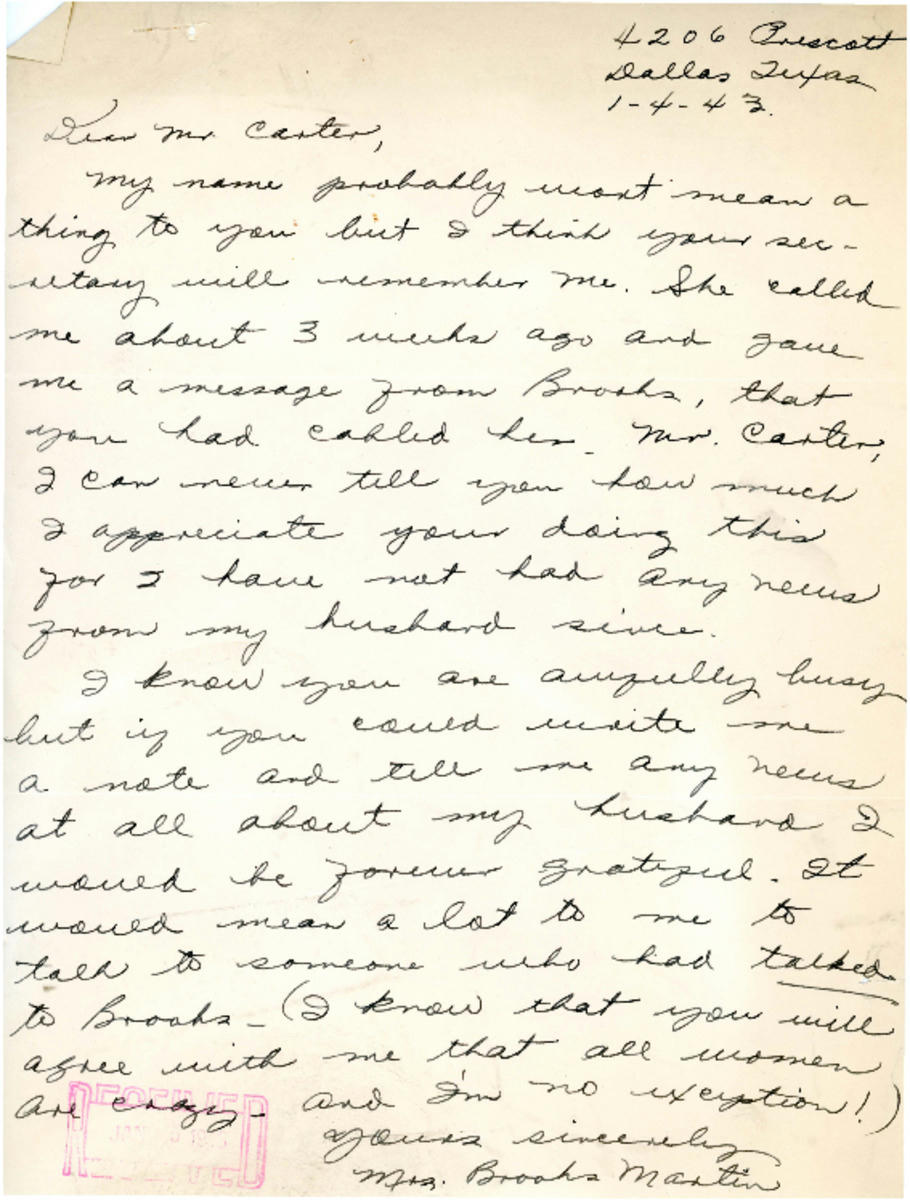 4206 Prescott
Dallas Texas
1-4-43.
Dear Mr. Carter,
My name probably wont mean a
thing to you but I think your sec-
retary will remember me. She called
me about 3 weeks ago and gave
me a message from Brooks, that
you had cabled her. Mr. Carter,
I can never tell you how much
I appreciate your doing this
for I have not had any news
from my husband since.
I know you are awfully busy
but if you could write me
a note and tell me any news
at all about my husband I
would be forever grateful. It
would mean a lot to me to
talk to someone who had talked
to Brooks - (I know that you will
agree with me that all women
are crazy - and I'm no exception!)
Yours sincerely
Mrs. Brooks Martin
RECEIVED
JAN